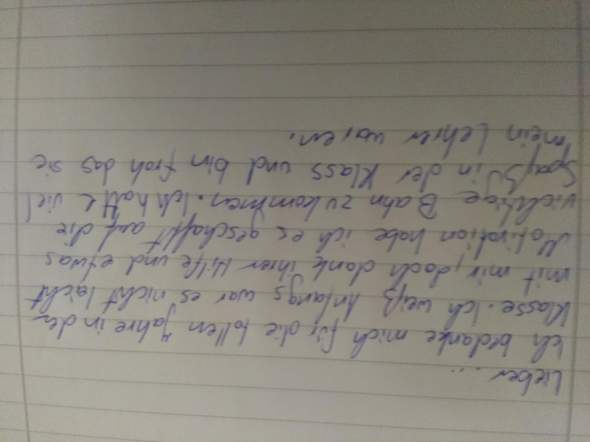 Lieber ...
Ich bedanke mich für die tollen Jahre in der
Klasse. Ich weiß Anfangs war es nicht leicht
mit mir, doch dank ihrer Hilfe und etwas
Motivation habe ich es geschafft auf die
richtige Bahn zu kommen. Ich hatte viel
Spaß in der Klass und bin froh das sie
mein Lehrer waren.